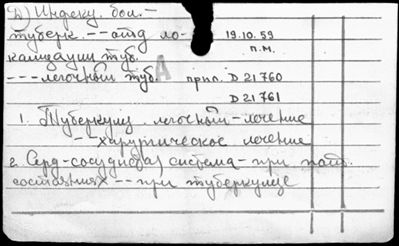 Д) Индекц. бол. –
туберк. -- отд ло- 19.10.59
кализации туб. п.м.
--- легочный туб. А прип. D 21760
D 21761
1. Туберкулез легочный – лечение
– хирургическое лечение
2. Серд-сосудистая система – при пат.
состояниях -- при туберкулезе